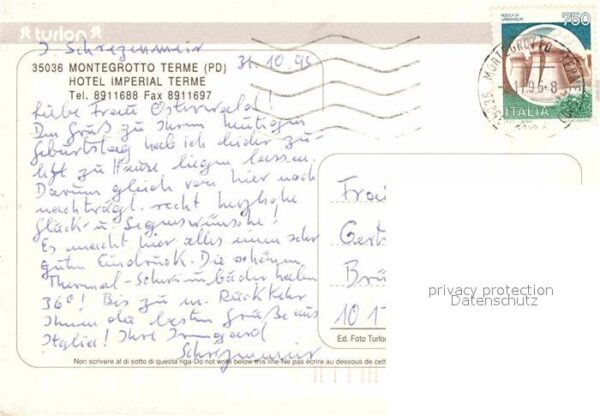 turlon
J. Schrezenmeir
31.10.95
35036 MONTEGROTTO TERME (PD)
HOTEL IMPERIAL TERME
Tel. 8911688 Fax 8911697
Liebe Frau Osterwald!
Den Gruß zu Ihrem heutigen
Geburtstag hab ich leider zu-
letzt zu Hause liegen lassen.
Darum gleich von hier noch
nachträgl. recht herzliche
Glück- u. Segenswünsche!
Es macht hier alles einen sehr
guten Eindruck. Die schönen
Thermal-Schwimmbäder haben
36°! Bis zu m. Rückkehr
Ihnen die besten Grüße aus
Italia! Ihre Irmgard
Schrezenmeir
ROCCA DI
URBISAGLIA
750
ITALIA
MONTEGROTTO TERME
Frau
Gert
Brü
10 1
privacy protection
Datenschutz
Ed. Foto Turlon
Non scrivere al di sotto di questa riga-Do not write below this line-Ne pas écrire au dessous de cette